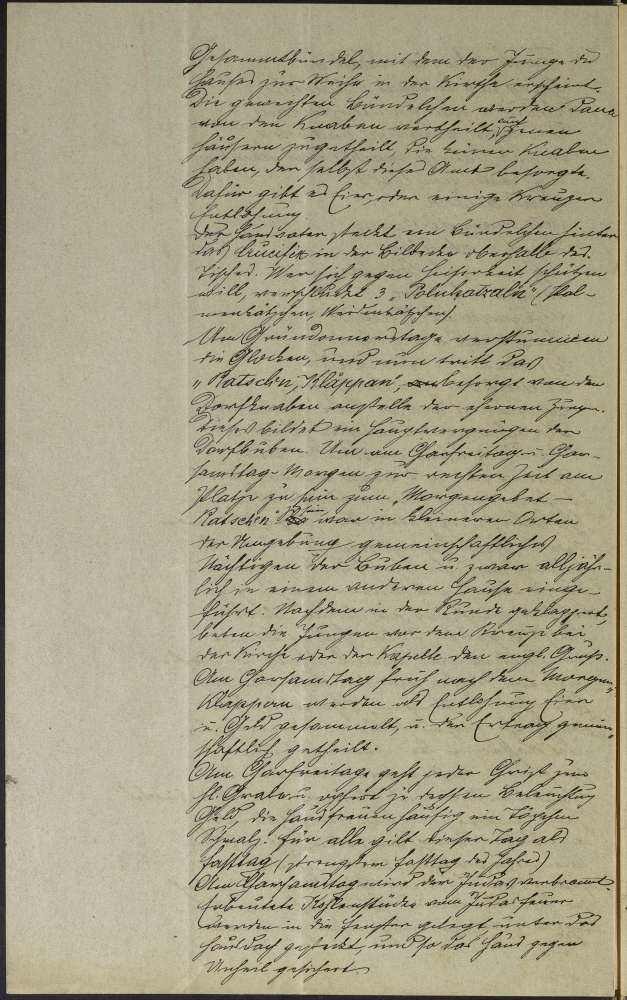 Gesammtbündel, mit dem der Junge des
Hauses zur Weihe in der Kirche erscheint.
Die geweihten Bündelchen werden dann
von den Knaben vertheilt, auch jenen
Häusern zugetheilt, die keinen Knaben
haben, der selbst dieses Amt besorgte.
Dafür gibt es Eier, oder einige Kreuzer
Entlohnung.
Der Hausvater steckt ein Bündelchen hinter
das Crucifix in der Bilderecke oberhalb des
Tisches. Wer sich gegen Heiserkeit schützen
will, verschluckt 3 „Polmkatzaln" (Pal-
menkätzchen, Weidenkätzchen)
Am Gründonnerstage verstummen
die Glocken, und nun tritt das
„Ratschn", Kläppan", besorgt von den
Dorfknaben anstelle der ehernen Zungen.
Dieses bildet ein Hauptvergnügen der
Dorfbuben. Um am Charfreitag u. Char-
samstag-Morgen zur rechten Zeit am
Platze zu sein zum „Morgengebet-
Ratschn" war in kleineren Orten
der Umgebung gemeinschaftliches
Nächtigen der Buben u. zwar alljähr-
lich in einem anderen Hause einge-
führt. Nachdem in der Runde geklappert,
beten die Jungen vor dem Kreuze bei
der Kirche oder der Kapelle den engl. Gruß.
Am Charsamstag früh nach dem Morgen-
klappern werden als Entlohnung Eier
u. Geld gesammelt, u. der Ertrag gemein-
schaftlich getheilt.
Am Charfreitage geht jeder Christ zum
hl. Grabe u. opfert zu dessen Beleuchtung
Geld, die Hausfrauen häufig ein Töpfchen
Schmalz. Für alle gilt dieser Tag als
Fasttag (strengster Fasttag des Jahres)
Am Charsamstag wird der Judas verbrannt.
Erbeutete Kohlenstücke vom Judasfeuer
werden in die Fenster gelegt, unter das
Hausdach gesteckt, und so das Haus gegen
Unheil gesichert.